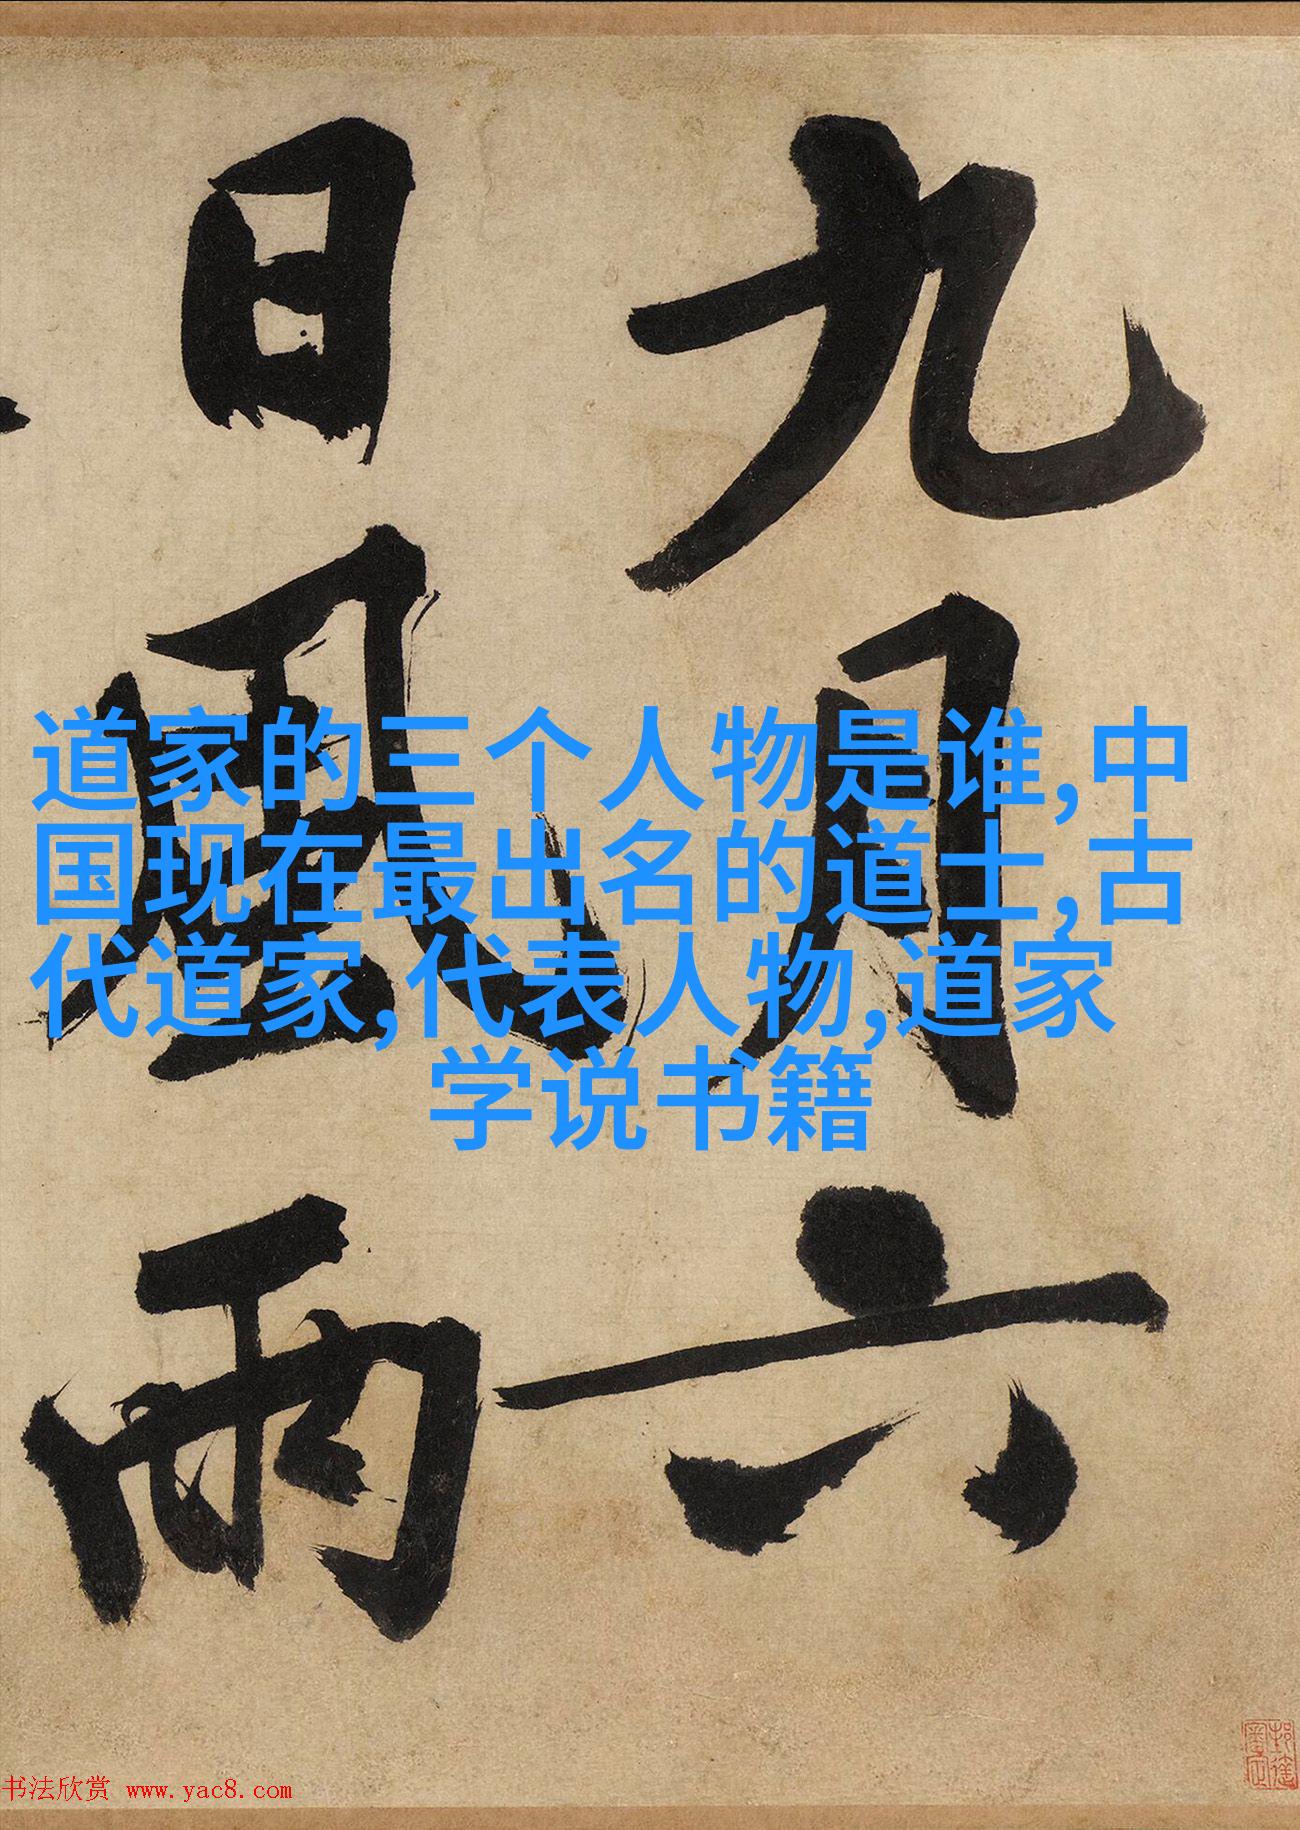 九月六
日風雨
道家的三个人物是谁,中
国现在最出名的道士,古
代道家,代表人物,道家
学说书籍
书法欣赏 www.yac8.com